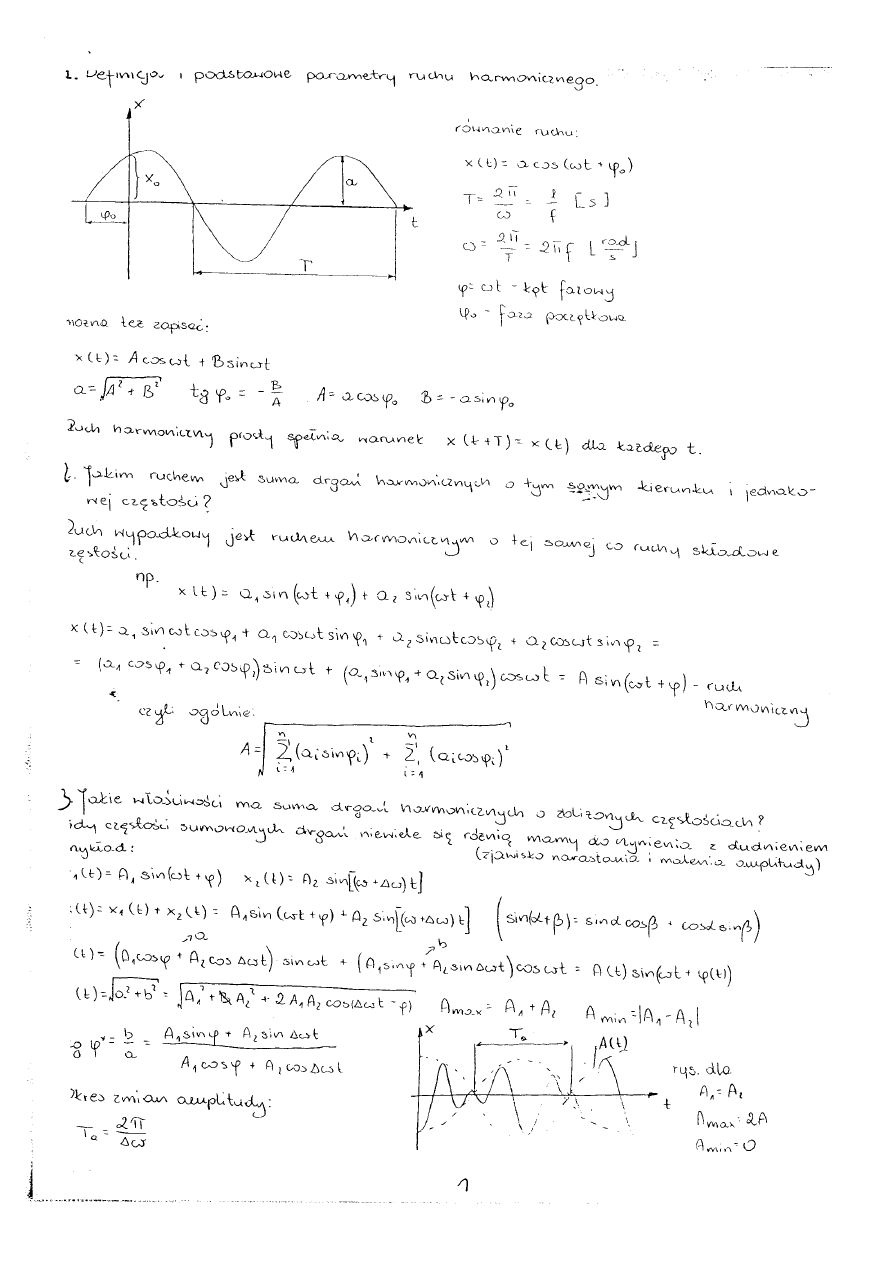 1. Definicja i podstawowe parametry ruchu harmonicznego.
x
x₀
a
φ₀
t
T
równanie ruchu:
x(t) = a cos(ωt + φ₀)
T = 2π/ω = 1/f [s]
ω = 2π/T = 2πf [rad/s]
φ = ωt - kąt fazowy
φ₀ - faza początkowa
można też zapisać:
x(t) = A cosωt + B sinωt
a = √(A² + B²) tg φ₀ = - B/A A = a cosφ₀ B = - a sinφ₀
Ruch harmoniczny prosty spełnia warunek x(t+T) = x(t) dla każdego t.
2. Jakim ruchem jest suma drgań harmonicznych o tym samym kierunku i jednako-
wej częstości?
Ruch wypadkowy jest ruchem harmonicznym o tej samej co ruchy składowe
zęstości.
np.
x(t) = a₁ sin(ωt + φ₁) + a₂ sin(ωt + φ₂)
x(t) = a₁ sinωt cosφ₁ + a₁ cosωt sinφ₁ + a₂ sinωt cosφ₂ + a₂ cosωt sinφ₂ =
= (a₁ cosφ₁ + a₂ cosφ₂) sinωt + (a₁ sinφ₁ + a₂ sinφ₂) cosωt = A sin(ωt + φ) - ruch
harmoniczny
czyli ogólnie:
A = √(∑ᵢ₌₁ⁿ (aᵢ sinφᵢ)² + ∑ᵢ₌₁ⁿ (aᵢ cosφᵢ)²)
3. Jakie właściwości ma suma drgań harmonicznych o zbliżonych częstościach?
idy częstości sumowanych drgań niewiele się różnią mamy do czynienia z dudnieniem
zykład: (zjawisko narastania i malenia amplitudy)
₁(t) = A₁ sin(ωt + φ) x₂(t) = A₂ sin[(ω + Δω)t]
(t) = x₁(t) + x₂(t) = A₁ sin(ωt + φ) + A₂ sin[(ω + Δω)t] (sin(α+β) = sinα cosβ + cosα sinβ)
a b
(t) = (A₁ cosφ + A₂ cosΔωt) sinωt + (A₁ sinφ + A₂ sinΔωt) cosωt = A(t) sin(ωt + φ(t))
(t) = √(a² + b²) = √(A₁² + A₂² + 2A₁A₂ cos(Δωt - φ)) Amax = A₁ + A₂ Amin = |A₁ - A₂|
g φ* = b/a = (A₁ sinφ + A₂ sinΔωt)/(A₁ cosφ + A₂ cosΔωt)
kres zmian amplitudy:
Tₐ = 2π/Δω
x
Tₐ
A(t)
t
rys. dla
A₁ = A₂
Amax = 2A
Amin = 0
1